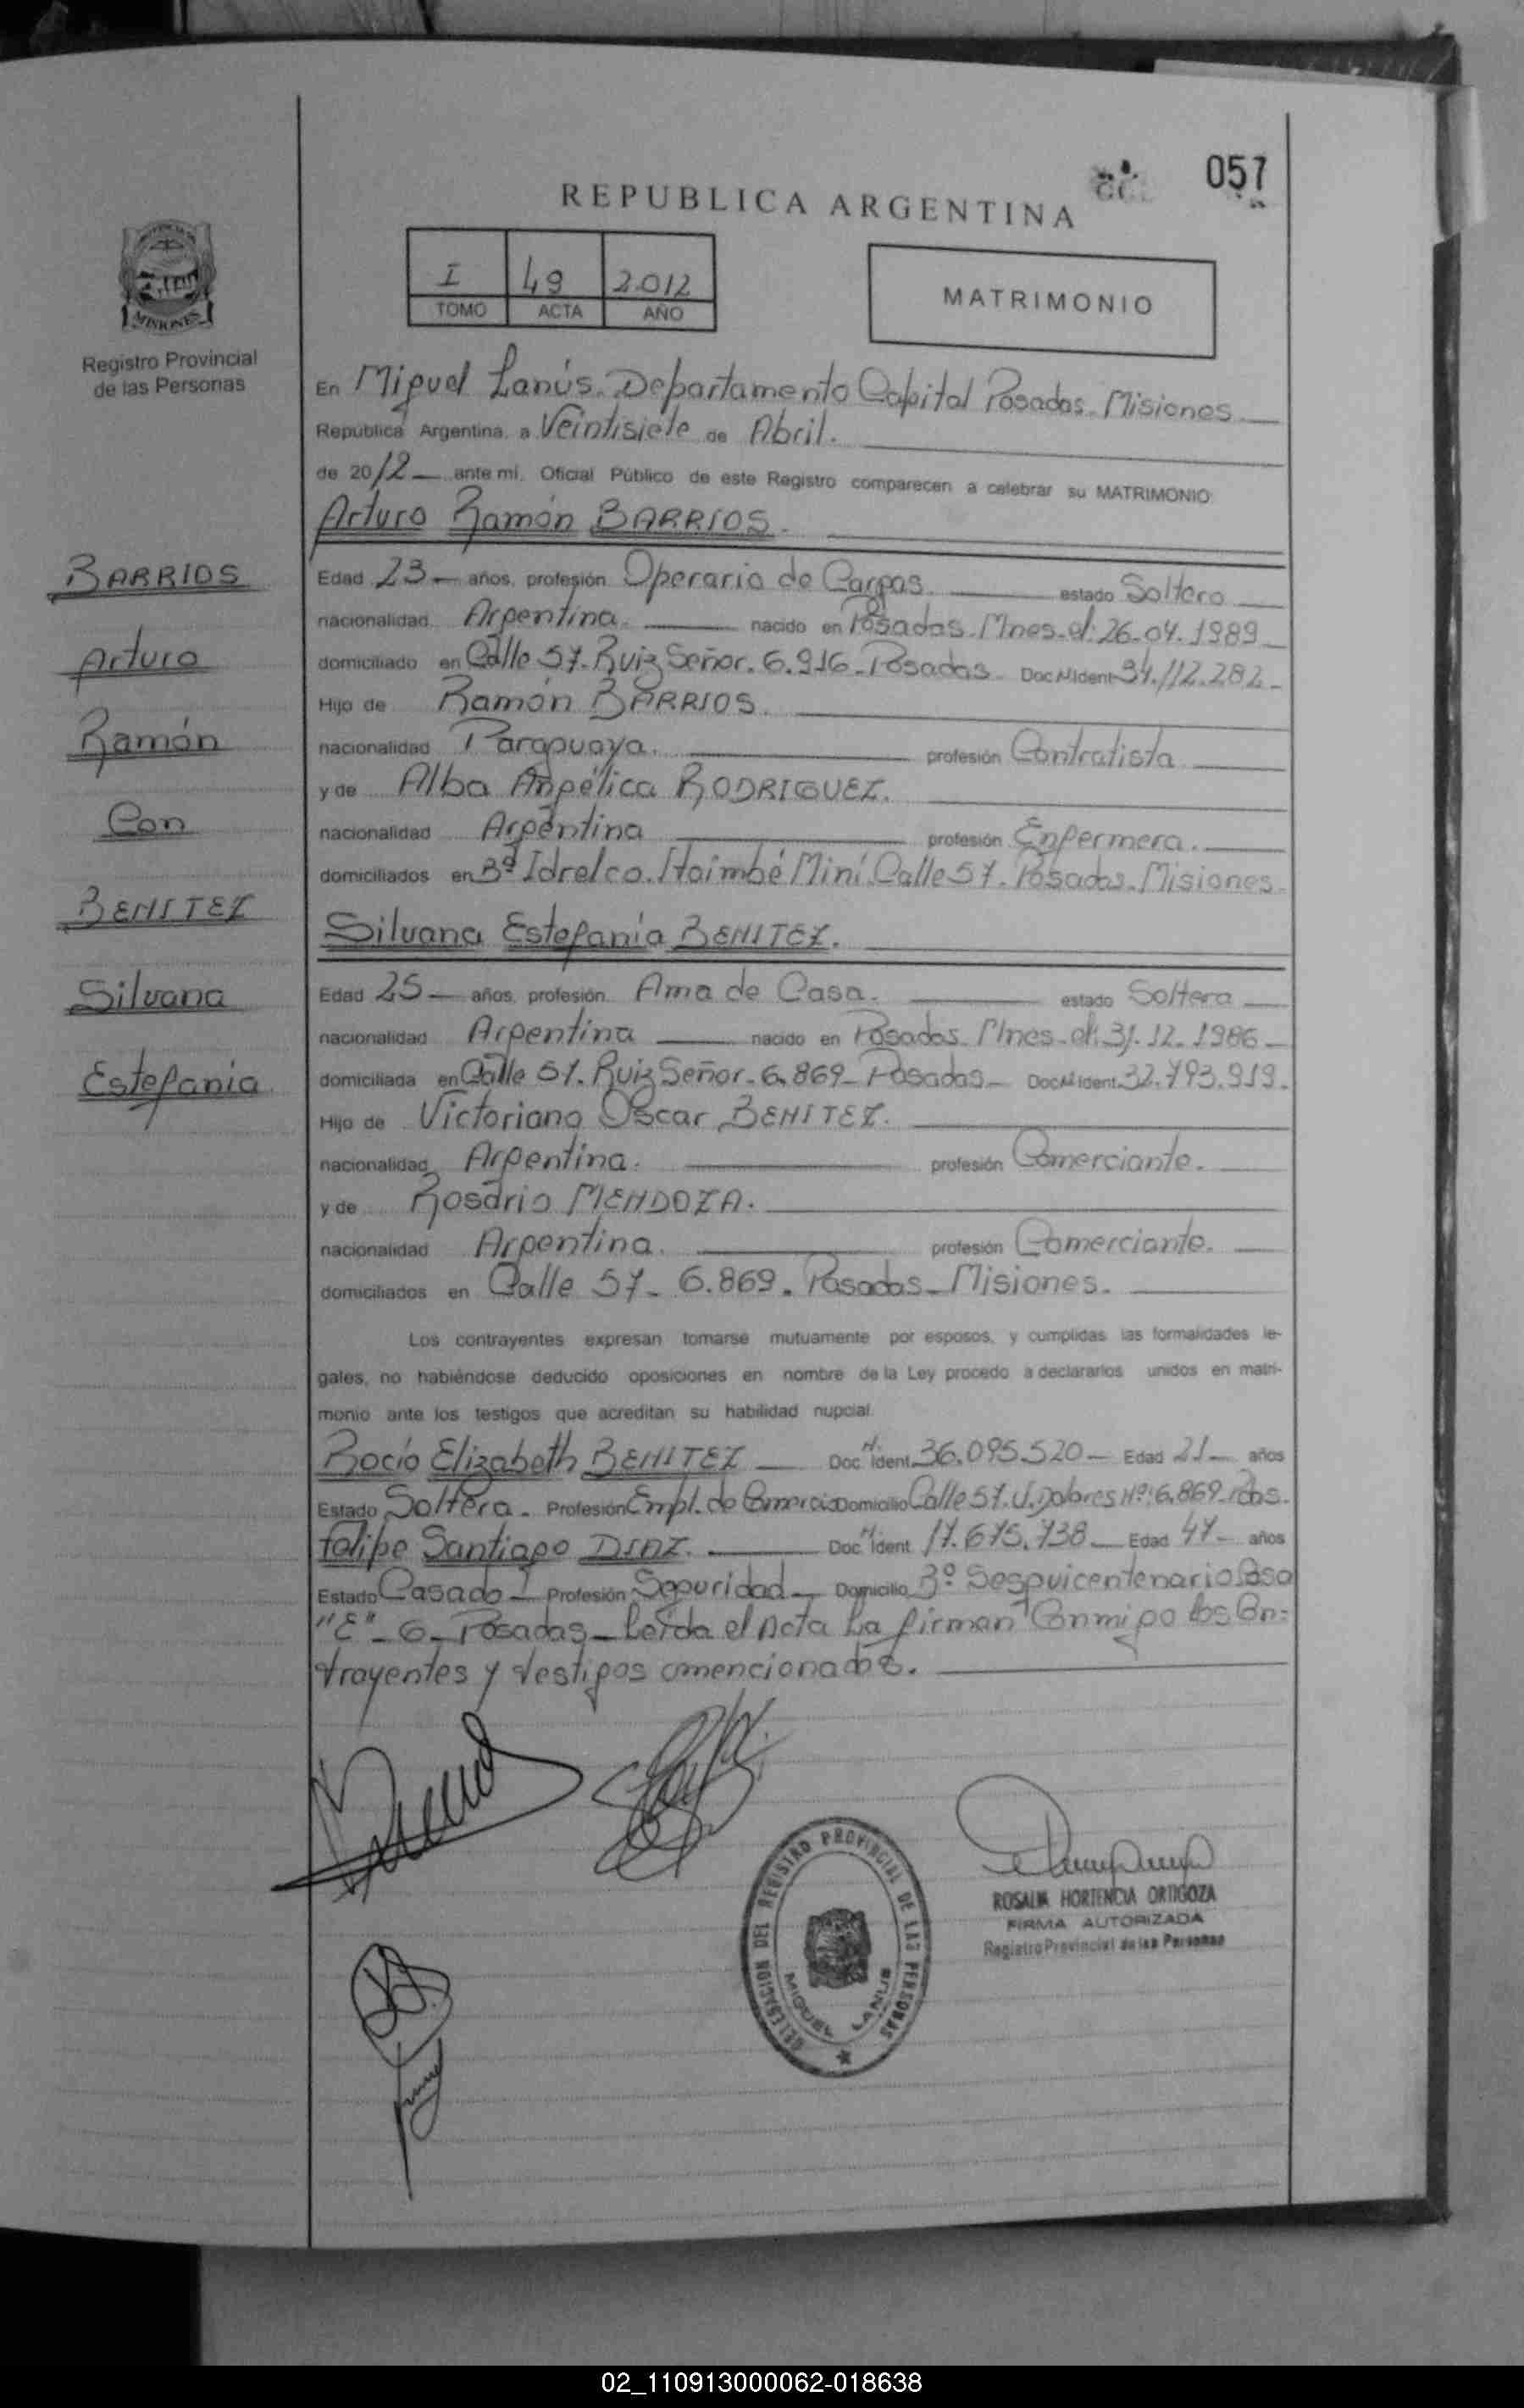 057
REPUBLICA ARGENTINA
I 49 2012
TOMO ACTA AÑO
MATRIMONIO
MISIONES
Registro Provincial
de las Personas
En Miguel Lanús. Departamento Capital Posadas. Misiones
República Argentina, a Veintisiete de Abril.
de 2012 ante mí, Oficial Público de este Registro comparecen a celebrar su MATRIMONIO:
Arturo Ramón BARRIOS.
Edad 23 años, profesión Operario de Cargas. estado Soltero
nacionalidad Argentina. nacido en Posadas. Mnes. el: 26-04-1989
domiciliado en Calle 57. Ruiz Señor. 6.916 - Posadas. Doc N Ident 34.112.282
Hijo de Ramón BARRIOS.
nacionalidad Paraguaya. profesión Contratista
y de Alba Angélica RODRIGUEZ.
nacionalidad Argentina profesión Enfermera.
domiciliados en Bº Idrelco. Itaimbé Miní. Calle 57. Posadas. Misiones.
Silvana Estefania BENITEZ.
Edad 25 años, profesión Ama de Casa. estado Soltera
nacionalidad Argentina nacido en Posadas. Mnes. el: 31.12.1986
domiciliada en Calle 57. Ruiz Señor. 6.869 - Posadas Doc Nº Ident. 32.793.919.
Hijo de Victoriano Oscar BENITEZ.
nacionalidad Argentina. profesión Comerciante.
y de Rosario MENDOZA.
nacionalidad Argentina. profesión Comerciante.
domiciliados en Calle 57 - 6.869. Posadas - Misiones.
Los contrayentes expresan tomarse mutuamente por esposos, y cumplidas las formalidades le-
gales, no habiéndose deducido oposiciones en nombre de la Ley procedo a declararlos unidos en matri-
monio ante los testigos que acreditan su habilidad nupcial.
Rocío Elizabeth BENITEZ Doc. N. Ident. 36.095.520 - Edad 21 años
Estado Soltera. Profesión Empl. de Comercio Domicilio Calle 57. V. Dolores Nº: 6.869 - Pdas.
Felipe Santiago DIAZ. Doc. N Ident. 17.675.738 - Edad 47 - años
Estado Casado Profesión Seguridad Domicilio Bº Sesquicentenario Casa
"E" - 6 - Posadas - Leída el Acta La firman Conmigo los Con=
trayentes y testigos mencionados.
BARRIOS
Arturo
Ramón
Con
BENITEZ
Silvana
Estefania
DELEGACION DEL REGISTRO PROVINCIAL DE LAS PERSONAS
MIGUEL LANUS
ROSALIA HORTENCIA ORTIGOZA
FIRMA AUTORIZADA
Registro Provincial de las Personas
02_110913000062-018638